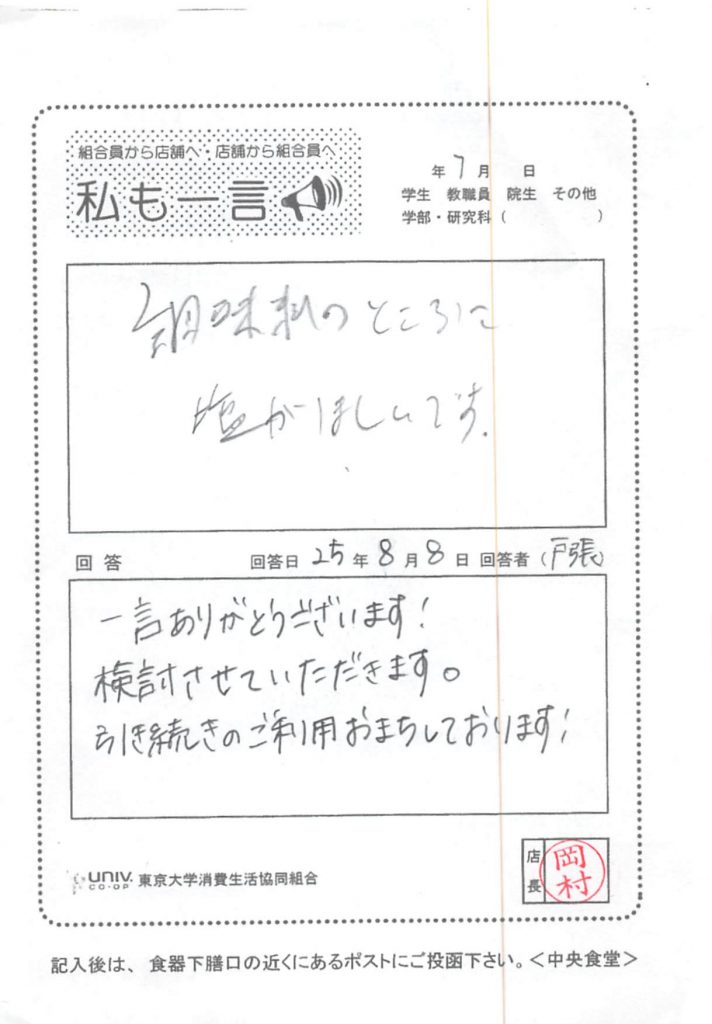 組合員から店舗へ・店舗から組合員へ
私も一言
年 7 月 日
学生 教職員 院生 その他
学部・研究科（ ）
調味料のところに
塩がほしいです.
回答 回答日 25 年 8 月 8 日 回答者（戸張）
一言ありがとうございます!
検討させていただきます。
引き続きのご利用おまちしております!
UNIV. CO-OP 東京大学消費生活協同組合
店長 岡村
記入後は、食器下膳口の近くにあるポストにご投函下さい。＜中央食堂＞